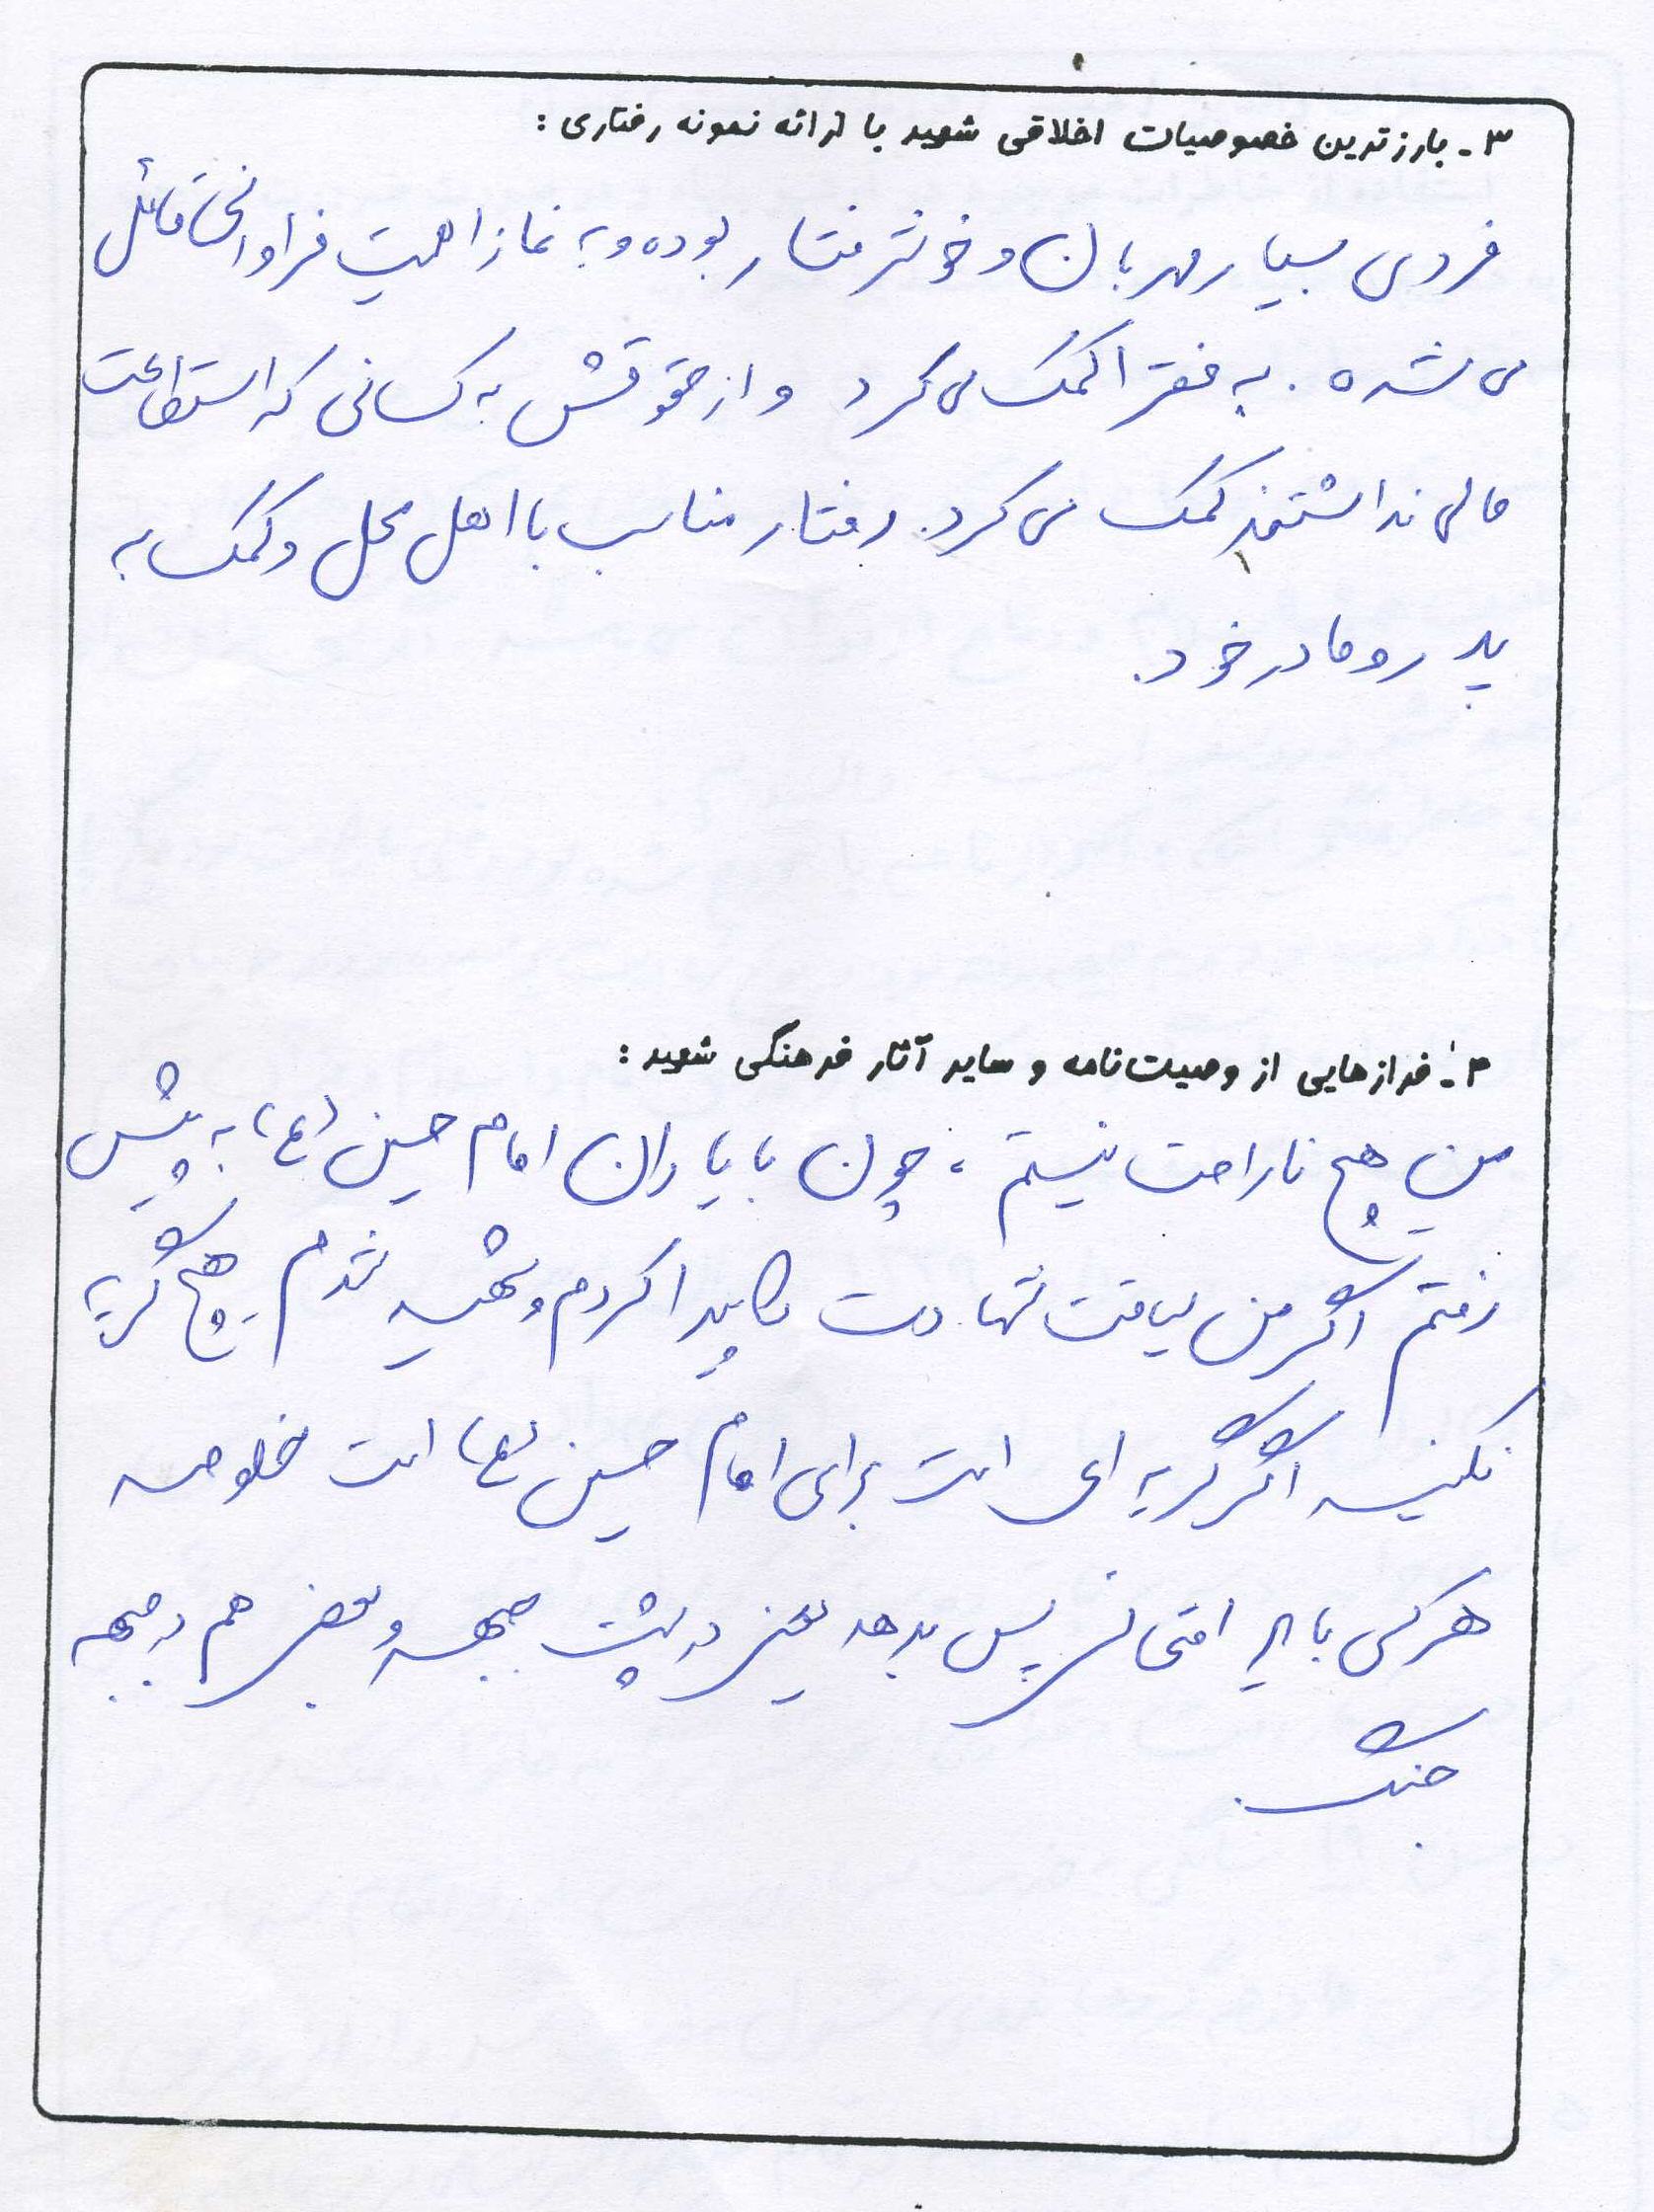 ۳- بارزترین خصوصیات اخلاقی شهید با ارائه نمونه رفتاری:
فردی بسیار مهربان و خوشرفتار بوده و به نماز اهمیت فراوانی قائل
می شده . به فقرا کمک می کرد و از حقوقش به کسانی که استطاعت
مالی نداشتند کمک می کرد. رفتار مناسب با اهل محل و کمک به
پدر و مادر خود.
۴- فرازهایی از وصیت‌نامه و سایر آثار فرهنگی شهید:
من هیچ ناراحت نیستم ، چون با یاران امام حسین (ع) به پیش
رفتم اگر من لیاقت شهادت را پیدا کردم و شهید شدم هیچ گریه
نکنید اگر گریه ای است برای امام حسین (ع) است خلاصه
هر کس باید امتحانی پس بدهد بعضی در پشت جبهه و بعضی هم در جبهه
جنگ.